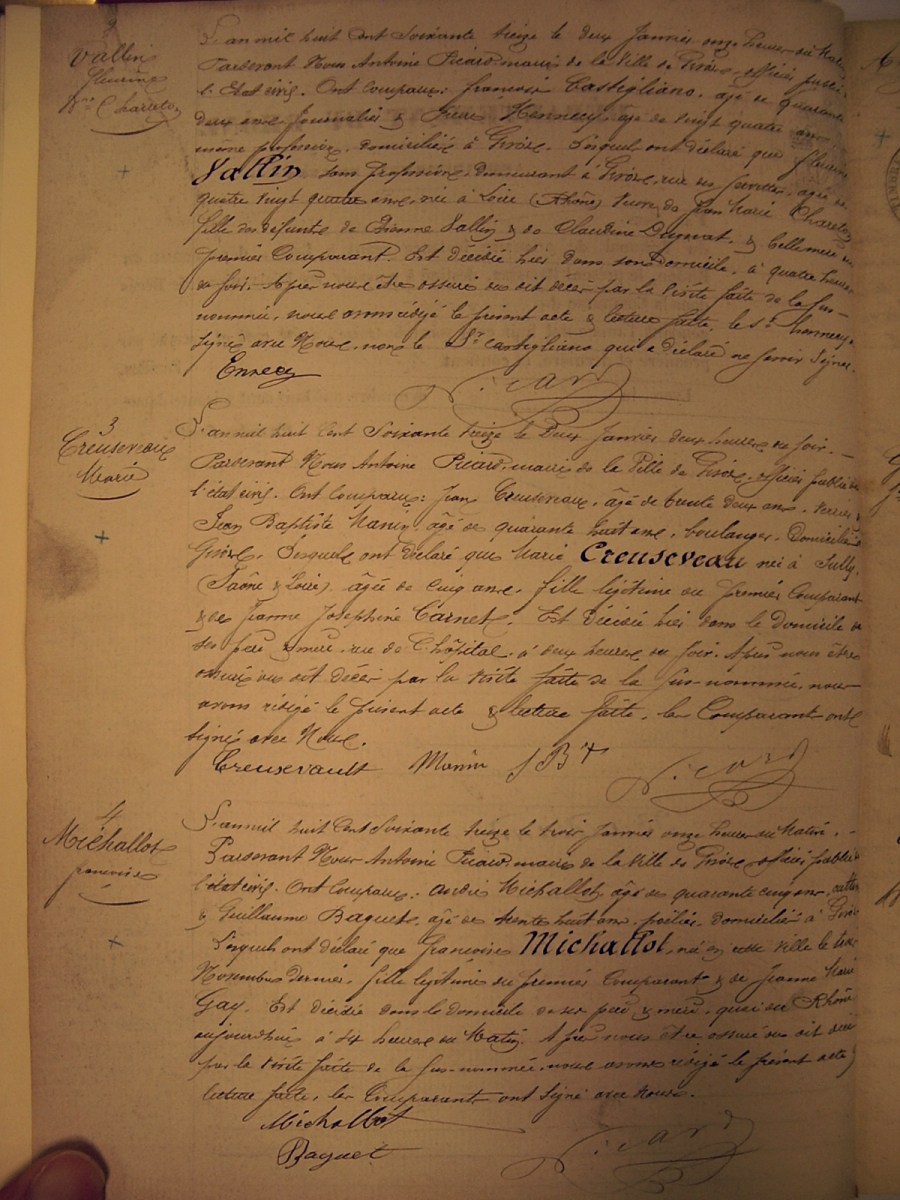 2
Vallin
fleurine
Vve Chareton
L'an mil huit cent soixante treize le deux Janvier onze heures du Matin
Pardevant Nous Antoine Picard maire de la Ville de Givors, officier public
l'Etat civil. Ont Comparu: françois Castigliano, agé de quarante
deux ans journalier & Henneci, agé de vingt quatre ans
même profession, domiciliés à Givors. Lesquels ont déclaré que fleurine
Vallin sans profession, demeurant à Givors, rue des agée de
quatre vingt quatre ans, née à Loire (Rhône) Veuve de Jean Marie Chareton
fille des défunts de Etienne Vallin & de Claudine & belle mère du
premier Comparant. Est décédée hier dans son Domicile, à quatre heures
du soir. Après nous être assuré du dit décès par la visite faite de la sus-
nommée, nous avons rédigé le présent acte & lecture faite, le Sr.
signé avec Nous, non le Sr. Castigliano qui a déclaré ne savoir signer.
Ennecy Picard
3
Creuseveau
Marie
L'an mil huit cent soixante treize le Deux Janvier deux heures du soir. —
Pardevant Nous Antoine Picard maire de la Ville de Givors, officier public de
l'état civil. Ont Comparu: Jean Creuseveaux, âgé de trente deux ans, verrier
Jean Baptiste Manin, âgé de quarante huit ans, boulanger. Domiciliés
Givors. Lesquels ont déclaré que Marie Creuseveau née à Sully
(Saône & Loire) âgée de cinq ans, fille légitime du premier Comparant
& de Jeanne Josephine Carnet. Est décédée hier dans le domicile de
ses père & mère, rue de l'hôpital, à deux heures du soir. Après nous être
assurés du dit décès par la visite faite de la sus-nommée, nous
avons rédigé le présent acte & lecture faite, les Comparants ont
signé avec Nous.
Creusevault Manin J Bte Picard
4
Michallot
françoise
L'an mil huit Cent soixante treize le trois Janvier onze heures du Matin. —
Pardevant Nous Antoine Picard maire de la Ville de Givors officier public
l'état civil. Ont Comparu: andré Michallot, âgé de quarante cinq ans,
& Guillaume Baguet, agé de trente huit ans, domiciliés à Givors
Lesquels ont déclaré que françoise Michallot, née en cette Ville le
Novembre dernier, fille légitime du premier Comparant & de Jeanne Marie
Gay. Est décédée dans le domicile de ses père & mère, quai du Rhône
aujourdhui à six heures du Matin. Après nous être assuré du dit décès
par la visite faite de la sus-nommée, nous avons rédigé le présent acte &
lecture faite, les Comparants ont signé avec Nous.
Michallot
Baguet Picard